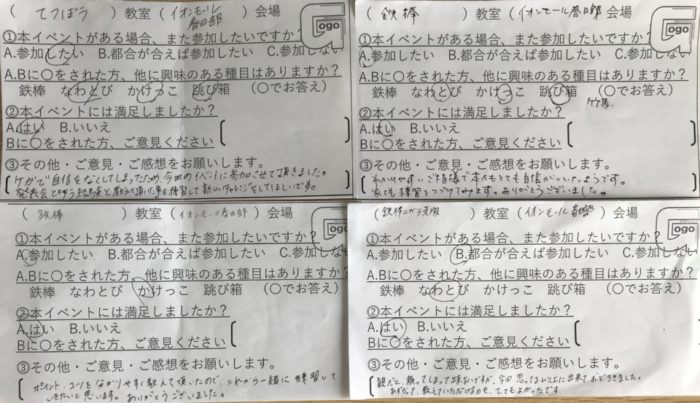 （ てつぼう ）教室（ イオンモール春日部 ）会場
ogo
①本イベントがある場合、また参加したいですか？
A.参加したい B.都合が合えば参加したい C.参加しない
A.Bに〇をされた方、他に興味のある種目はありますか？
鉄棒 なわとび かけっこ 跳び箱 （〇でお答え）
②本イベントには満足しましたか？
A.はい B.いいえ
Bに〇をされた方、ご意見ください
③その他・ご意見・ご感想をお願いします。
ケガで自信をなくしてしまったため今回のイベントに参加させて頂きました。
（ 鉄棒 ）教室（ イオンモール春日部 ）会場
ogo
①本イベントがある場合、また参加したいですか？
A.参加したい B.都合が合えば参加したい C.参加しない
A.Bに〇をされた方、他に興味のある種目はありますか？
鉄棒 なわとび かけっこ 跳び箱 （〇でお答え）
②本イベントには満足しましたか？
A.はい B.いいえ
Bに〇をされた方、ご意見ください
③その他・ご意見・ご感想をお願いします。
わかりやすいご指導で本人もとても自信がついたようです。
家でも練習をつづけてみます。ありがとうございました。
（ 鉄棒 ）教室（ イオンモール春日部 ）会場
ogo
①本イベントがある場合、また参加したいですか？
A.参加したい B.都合が合えば参加したい C.参加しない
A.Bに〇をされた方、他に興味のある種目はありますか？
鉄棒 なわとび かけっこ 跳び箱 （〇でお答え）
②本イベントには満足しましたか？
A.はい B.いいえ
Bに〇をされた方、ご意見ください
③その他・ご意見・ご感想をお願いします。
ポイント、コツをわかりやすく教えて頂いたので、これから一緒に練習して
いきたいと思います。ありがとうございました。
（ 鉄棒ニガテ克服 ）教室（ イオンモール春日部 ）会場
ogo
①本イベントがある場合、また参加したいですか？
A.参加したい B.都合が合えば参加したい C.参加しない
A.Bに〇をされた方、他に興味のある種目はありますか？
鉄棒 なわとび かけっこ 跳び箱 （〇でお答え）
②本イベントには満足しましたか？
A.はい B.いいえ
Bに〇をされた方、ご意見ください
③その他・ご意見・ご感想をお願いします。
教えていただけるので、とてもよかったです